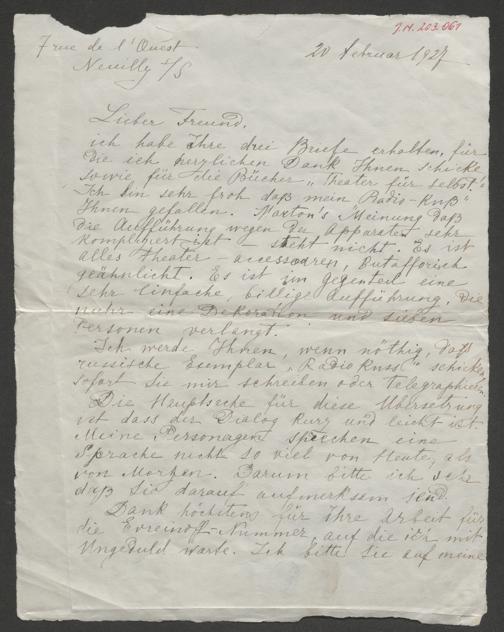 J.N. 203.061
7 rue de l'Ouest
Neuilly s/S
20 februar 1927
Lieber Freund,
ich habe Ihre drei Briefe erhalten, für
die ich herzlichen Dank Ihnen schicke
sowie für die Bücher „Theater für selbst."
Ich bin sehr froh daß mein Radio-Kuß"
Ihnen gefallen. Marton's Meinung daß
die Aufführung wegen der Apparaten sehr
kompliziert ist – steht nicht. Es ist
alles theater – accessoaren, butafforisch
geähnlicht. Es ist im gegenteil eine
sehr einfache, billige Aufführung, die
nuhr eine Dekoration und sieben
Personen verlangt.
Ich werde Ihnen, wenn nöthig, daß
russische Exemplar „Radio Kuss" schicken
sofort Sie mir schreiben oder telegraphieren.
Die Hauptseche für diese Übersetzung
ist dass der Dialog kurz und leicht ist.
Meine Personagen sprechen eine
Sprache nicht so viel von Heute, als
von Morgen. Darum bitte ich sehr
daß Sie daraus aufmerksam send.
Dank höchstens für Ihre Arbeit für
die Evreinoff-Nummer, auf die ich mit
Ungeduld warte. Ich bitte Sie auf meine